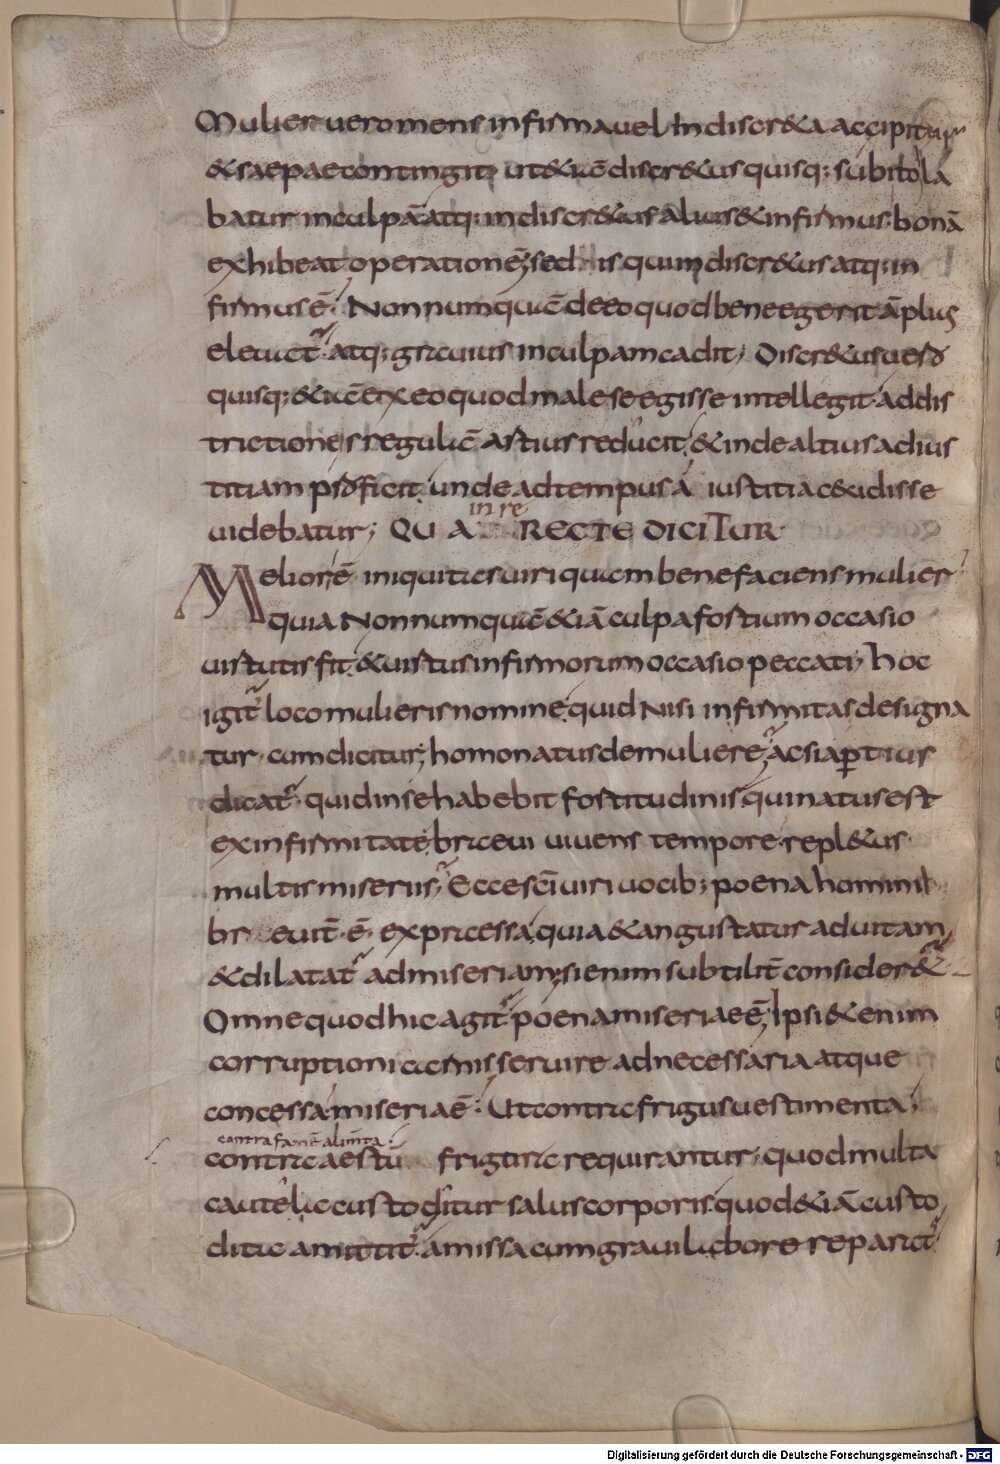 Mulier uero mens infirma uel Indiscr&a accipitur
&saepae contingit ut &iā discr&us quisq; subito la
batur in culpā atq; indiscr&us alius & infirmus bonā
exhibeat operationē; sed is qui indiscr&us atq; in
firmus ē. Non numquā de eo quod bene egerit ā plus
eleuat atq; grauius in culpam cadit, Discr&us uero
quisq; &iā ex eo quod male se egisse intellegit addis
trictionis regulā artius reducit & inde altius ad ius
titiam proficit unde ad tempus a iustitia cecidisse
uidebatur; QUA in re RECTE DICITUR
Meliorē iniquitas uiri quam benefaciens mulier
quia Non numquā &iā culpa fortium occasio
uirtutis fit & uirtus infirmorum occasio peccati; hoc
igit loco mulieris nomine quid Nisi infirmitas designa
tur cum dicitur; homo natus de muliere ac si aptius
dicat quid in se habebit fortitudinis qui natus est
ex infirmitate breui uiuens tempore repl&us
multis miseriis; Ecce sci uiri uocib; poena homini
br euit ē expressa, quia &angustatur ad uitam
& dilatat ad miseriam; si enim subtilit consider&
Omne quod hic agit poena miseria eē; Ipsi &enim
corruptioni carnis seruire ad necessaria atque
concessa miseria ē: Ut contra frigus uestimenta;
contra famē alimta
contra aestū frigura requirantur, quod multa
cautela custoditur salus corporis quod &iā custo
dita amittit amissa cum graui labore reparat
Digitalisierung gefördert durch die Deutsche Forschungsgemeinschaft - DFG